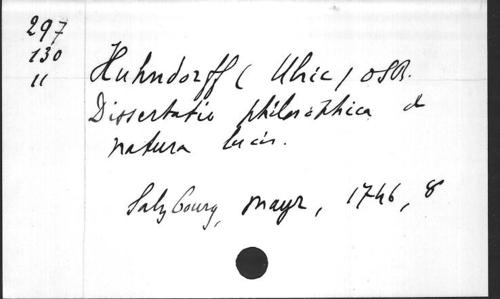 297
130
11
Huhndorff (Ulric) OSB.
Dissertatio philosophica de
natura lucis.
Salzbourg, Mayr, 1746, 8